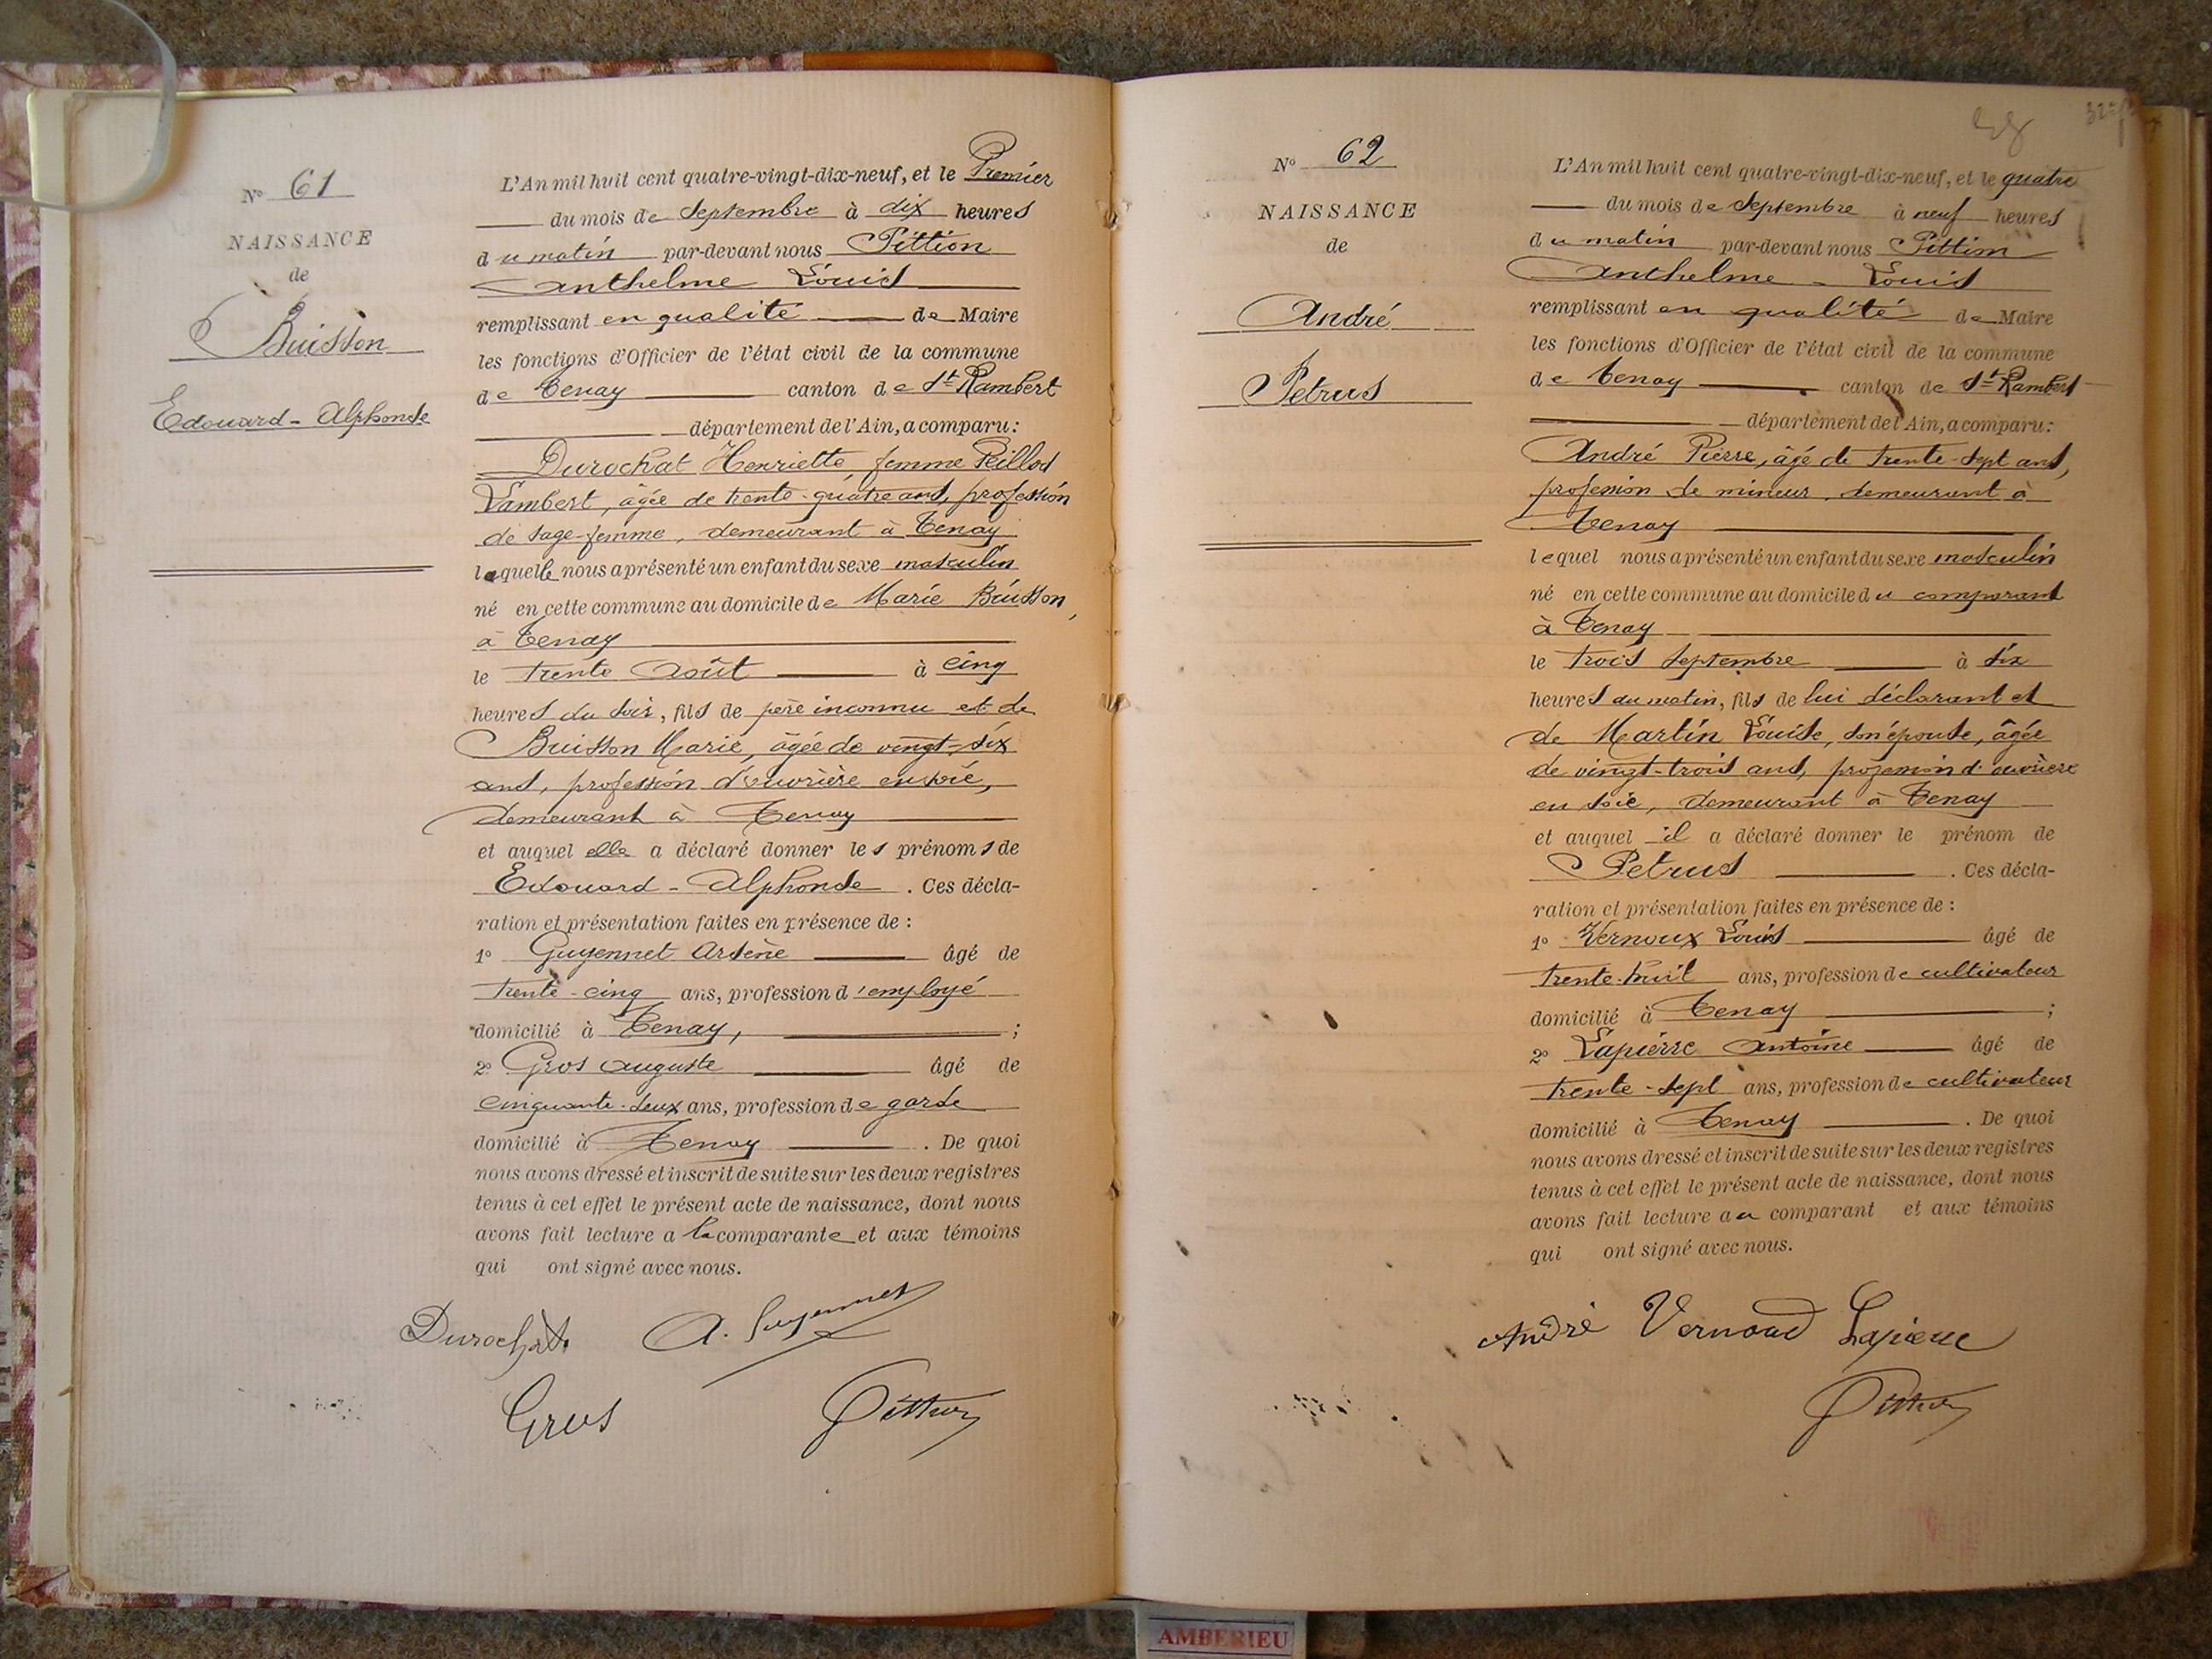 Nº 61
NAISSANCE
de
Buisson
Edouard - Alphonse
L'An mil huit cent quatre-vingt-dix-neuf, et le Premier
du mois de Septembre à dix heures
du matin par-devant nous Pittion
Anthelme Louis
remplissant en qualité de Maire
les fonctions d'Officier de l'état civil de la commune
de Tenay canton de St Rambert
département de l'Ain, a comparu :
Durochat Henriette femme Peillod
Lambert, âgée de trente-quatre ans, profession
de sage-femme, demeurant à Tenay
laquelle nous a présenté un enfant du sexe masculin
né en cette commune au domicile de Marie Buisson,
à Tenay
le trente Août à cinq
heures du soir, fils de père inconnu et de
Buisson Marie, âgée de vingt-six
ans, profession d'ouvrière en soie,
demeurant à Tenay
et auquel elle a déclaré donner les prénoms de
Edouard - Alphonse. Ces décla-
ration et présentation faites en présence de :
1º Guyennet Arsène âgé de
trente-cinq ans, profession d'employé
domicilié à Tenay, ;
2º Gros Auguste âgé de
cinquante-deux ans, profession de garde
domicilié à Tenay. De quoi
nous avons dressé et inscrit de suite sur les deux registres
tenus à cet effet le présent acte de naissance, dont nous
avons fait lecture a la comparante et aux témoins
qui ont signé avec nous.
Durochat A. Guyennet
Gros Pittion
Nº 62
NAISSANCE
de
André
Petrus
L'An mil huit cent quatre-vingt-dix-neuf, et le quatre
du mois de Septembre à neuf heures
du matin par-devant nous Pittion
Anthelme - Louis
remplissant en qualité de Maire
les fonctions d'Officier de l'état civil de la commune
de Tenay canton de St Rambert
département de l'Ain, a comparu :
André Pierre, âgé de trente-sept ans,
profession de mineur, demeurant à
Tenay
lequel nous a présenté un enfant du sexe masculin
né en cette commune au domicile du comparant
à Tenay
le trois Septembre à six
heures du matin, fils de lui déclarant et
de Martin Louise, son épouse, âgée
de vingt-trois ans, profession d'ouvrière
en soie, demeurant à Tenay
et auquel il a déclaré donner le prénom de
Petrus. Ces décla-
ration et présentation faites en présence de :
1º Vernoux Louis âgé de
trente-huit ans, profession de cultivateur
domicilié à Tenay ;
2º Lapierre Antoine âgé de
trente-sept ans, profession de cultivateur
domicilié à Tenay. De quoi
nous avons dressé et inscrit de suite sur les deux registres
tenus à cet effet le présent acte de naissance, dont nous
avons fait lecture au comparant et aux témoins
qui ont signé avec nous.
André Vernoud Lapierre
Pittion
AMBERIEU